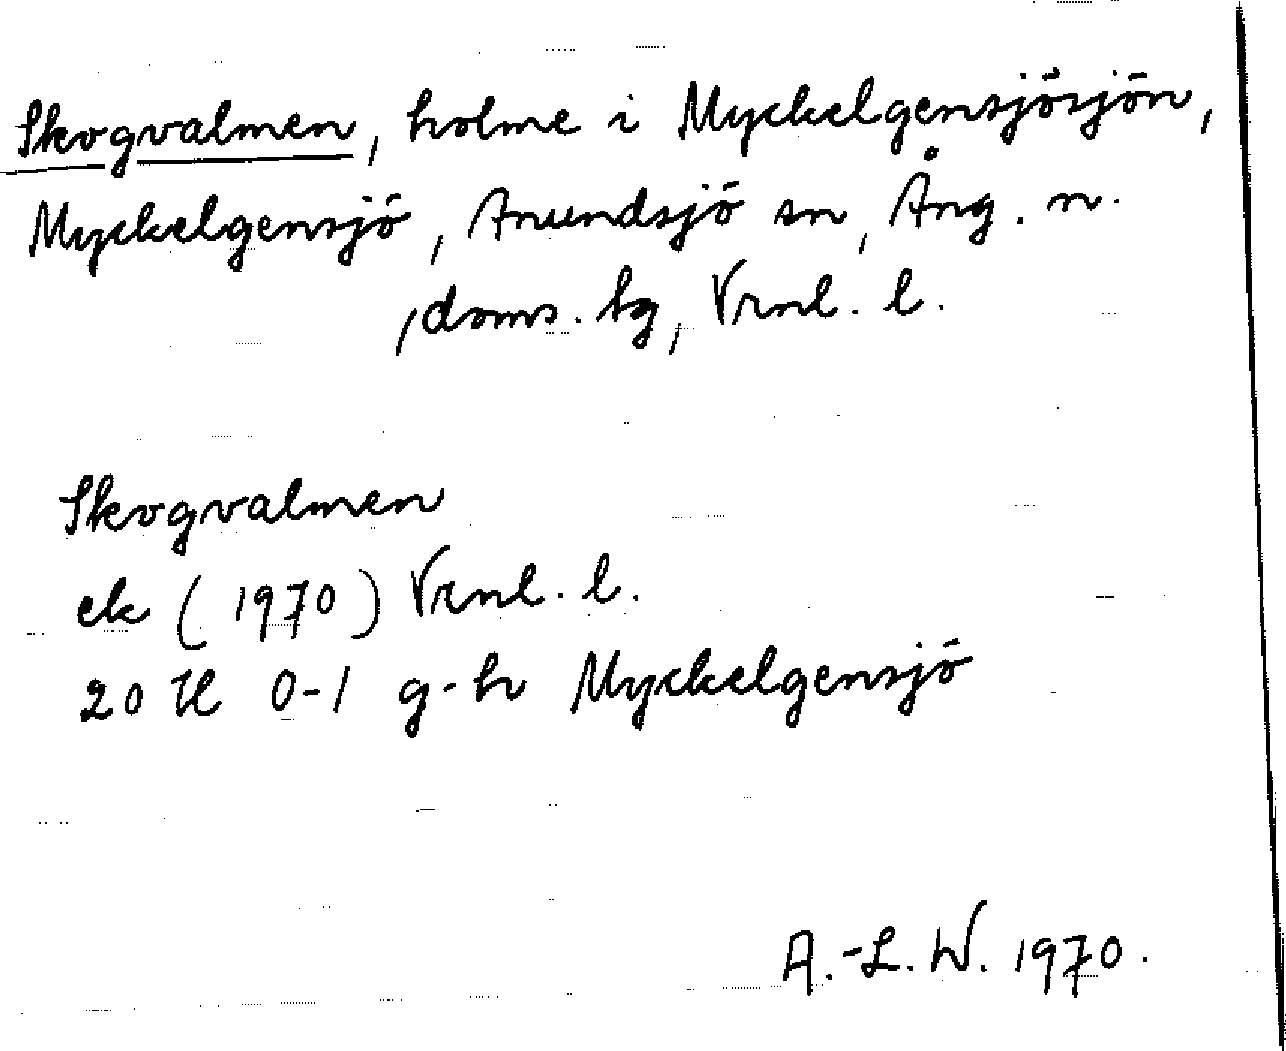 Skogvalmen, holme i Myckelgensjösjön,
Myckelgensjö, Anundsjö sn, Ång. n.
, doms. tg, Vrnl. l.
Skogvalmen
ek (1970) Vrnl. l.
20 H 0-1 g-h Myckelgensjö
A.-L. W. 1970.